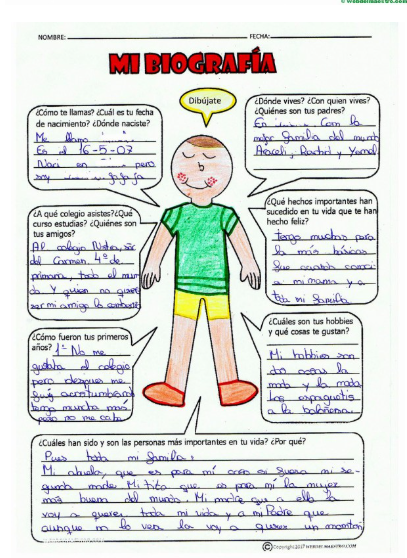 © Webdelmaestro.com
NOMBRE: FECHA:
MI BIOGRAFÍA
Dibújate
¿Cómo te llamas? ¿Cuál es tu fecha
de nacimiento? ¿Dónde naciste?
Me llamo
En el 16-5-07
Naci en pero
soy
¿Dónde vives? ¿Con quien vives?
¿Quiénes son tus padres?
En Con la
mejor familia del mundo
Araceli, Rachid y Yamal
¿A qué colegio asistes?¿Qué
curso estudias? ¿Quiénes son
tus amigos?
Al colegio Ntra, Sra
del Carmen, 4º de
primaria, todo el mun
do Y quien no quiere
ser mi amigo la
¿Qué hechos importantes han
sucedido en tu vida que te han
hecho feliz?
tengo muchos pero
la más
que conoci
a mi mama y a
toda mi familia
¿Cómo fueron tus primeros
años? 1º No me
gustaba el colegio
pero despues me
fui acostumbrando
tengo mucha mas
pero no me cabe
¿Cuáles son tus hobbies
y qué cosas te gustan?
Mi hobbies son
dos cosas la
moto y la moda
Los espaguetis
a la boloñesa.
¿Cuáles han sido y son las personas más importantes en tu vida? ¿Por qué?
Pues toda mi familia:
Mi abuela, que es para mí como si fuera mi se-
gunda madre. Mi tita que es para mí la mujer
mas buena del mundo. Mi madre que a ella la
voy a querer toda mi vida y a mi Padre que
aunque no lo vea lo voy a querer un monton
© Copyright 2017 WEBDELMAESTRO.COM